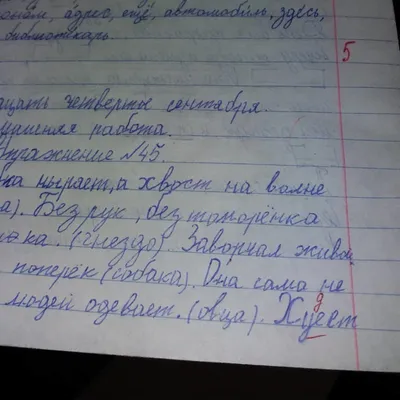 адрес, ещё, автомобиль, здесь,
библиотекарь
5
ацать четверты сентября.
ашняя работа.
Упражнение №45.
ка ныряет, а хвост на волне
а). Без рук, без топорёнка
ка. (гнездо). Заворчал живой
поперёк (собака). Она сама не
д
людей одевает. (овца). Хуест